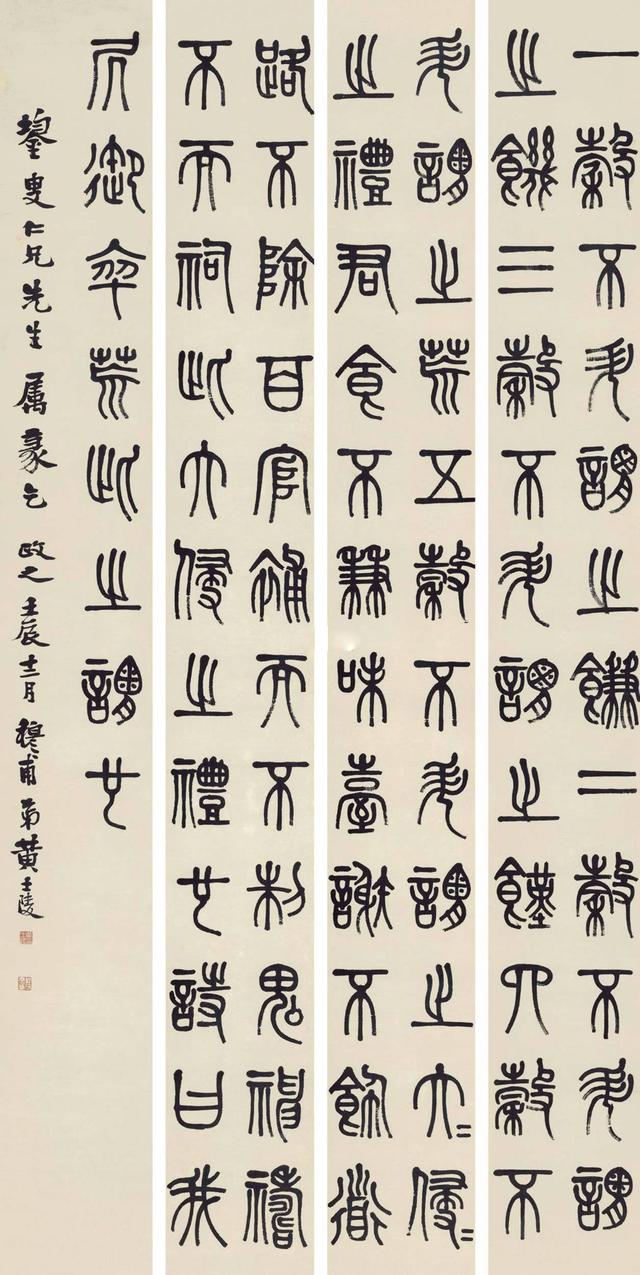 一穀不升謂之䭑二穀不升謂
之饑三穀不升謂之饉四穀不
升謂之荒五穀不升謂之大＝侵＝
之禮君食不兼味臺謝不飾道
路不除百官補而不制鬼神禱
不而祠此大侵之禮也詩曰我
凥御卒荒此之謂也
叟仁兄先生屬篆乞政之壬辰十二月穆甫弟黃士陵